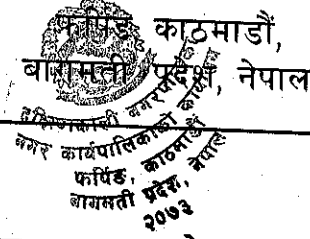 फर्पिङ, काठमाडौं,
बागमती प्रदेश, नेपाल
दक्षिणकाली नगरपालिका
नगर कार्यपालिकाको कार्यालय
फर्पिङ, काठमाडौं
बागमती प्रदेश, नेपाल
२०७३